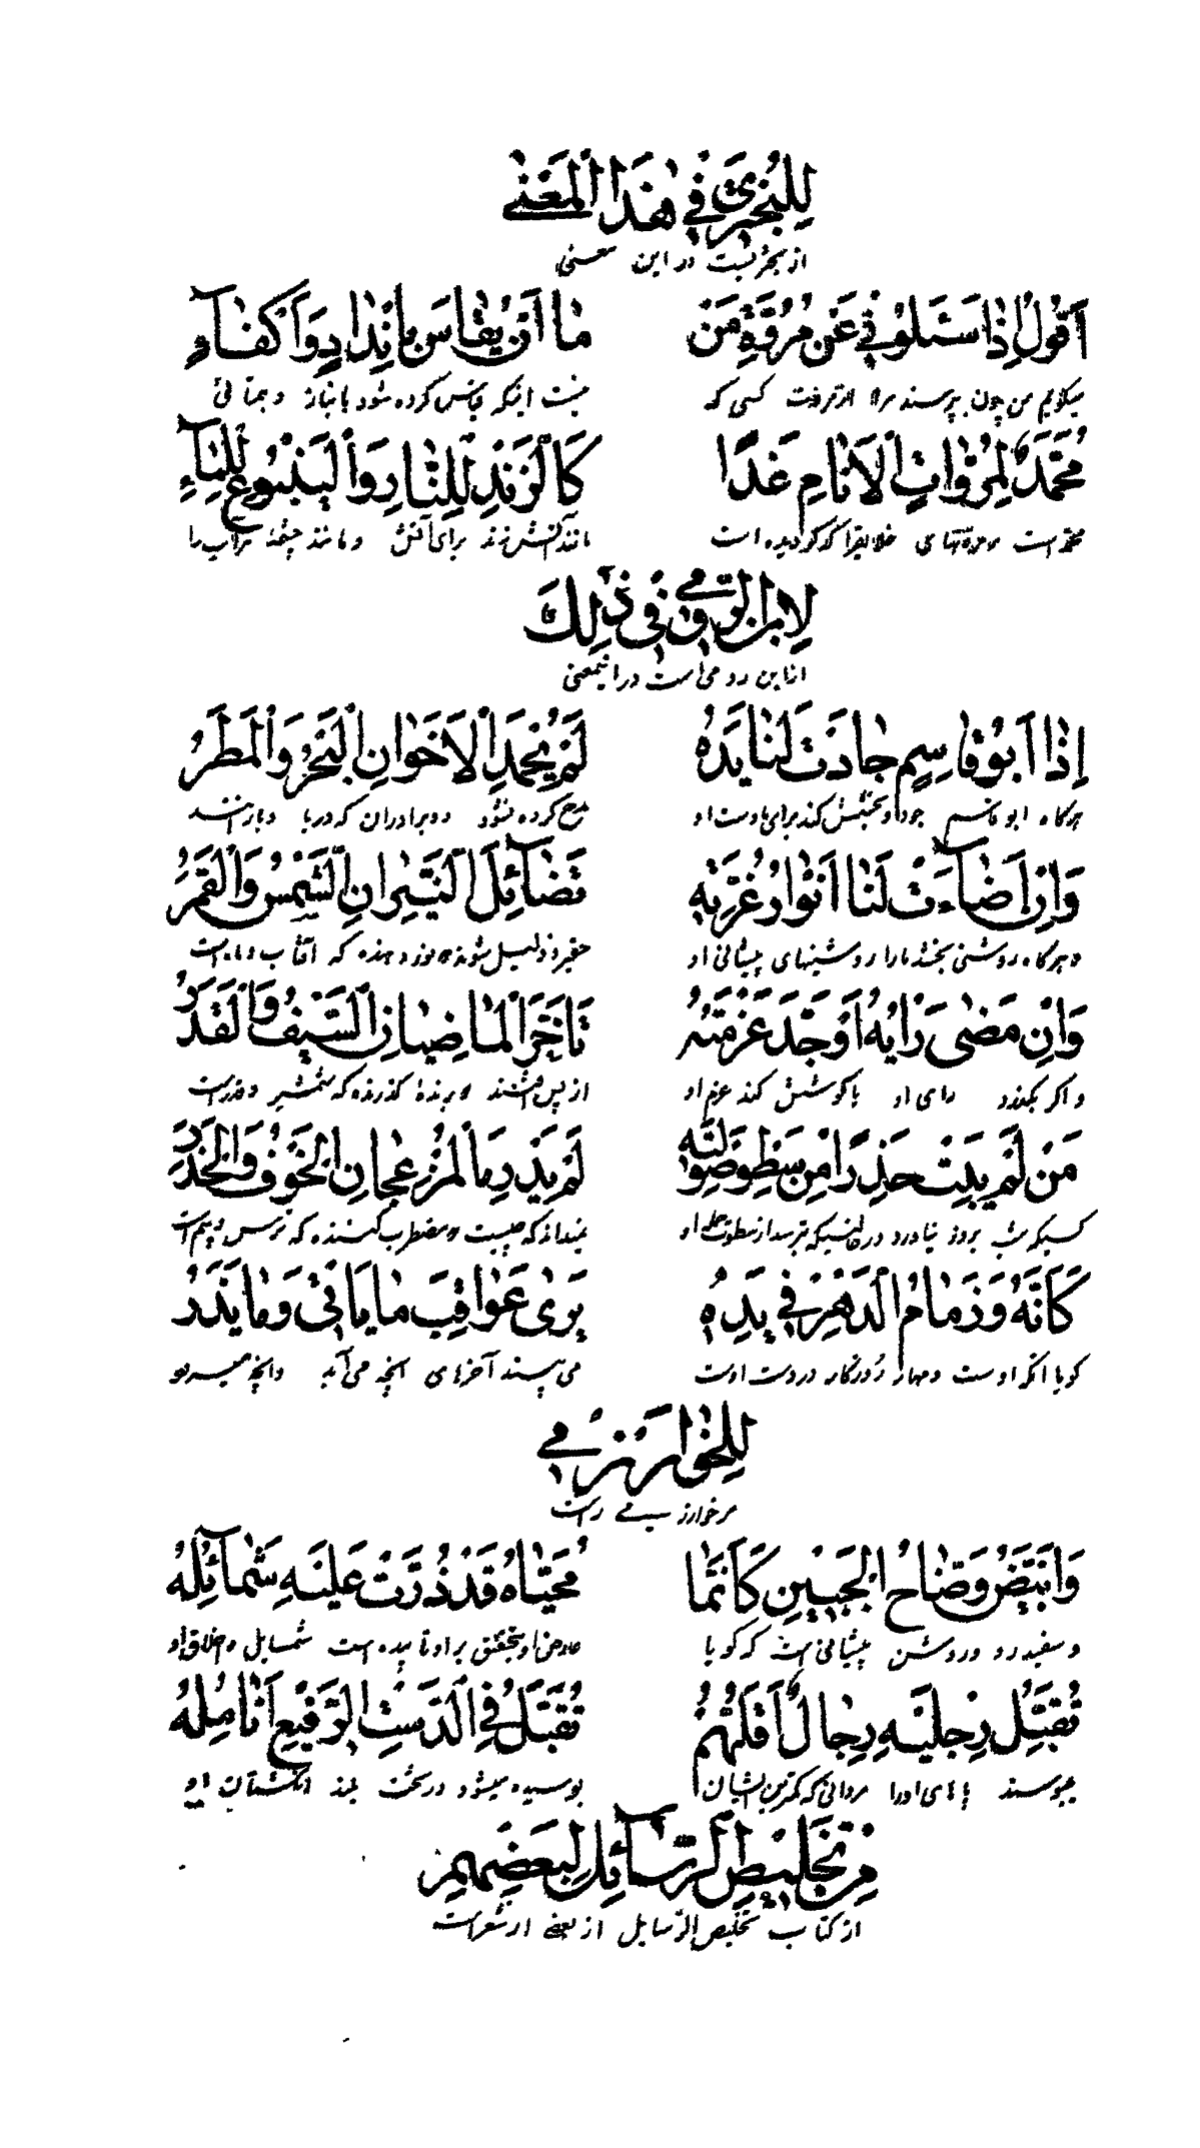 لِلبُحْتُرِيِّ فِي هٰذَا الْمَعْنٰى
از بحتریست در این معنی
اَقُولُ اِذَا سَئَلُونِي عَنْ مُرُوَّةِ مَنْ مٰا اَنْ يُقٰاسَ بِاَنْدٰادٍ وَاَكْفٰآءِ
میگویم من چون پرسند مرا از مروت کسی که نیست اینکه قیاس کرده شود بانباز و همتائی
مُحَمَّدٌ لِمُرُوّٰاتِ الْاَنٰامِ غَدًا كَالزَّنْدِ لِلنّٰارِ وَالْيَنْبُوعِ لِلْمٰآءِ
محمد است مروتهای خلایقرا که کردیده است مانند آتش زنه برای آتش و مانند چشمهٔ مر آب را
لِابْنِ الرُّومِي فِي ذٰلِكَ
از ابن رومی است در اینمعنی
اِذٰا اَبُوقٰاسِمٍ جٰادَتْ لَنٰا يَدُهُ لَمْ يُحْمَدِ الْاَخَوٰانِ الْبَحْرُ وَالْمَطَرُ
هرگاه ابو قاسم جود و بخشش کند برای ما دست او مدح کرده نشود دو برادران که دریا و بارانند
وَاِنْ اَضٰآءَتْ لَنٰا اَنْوٰارُ غُرَّتِهِ تَضٰآئَلَ النَّيِّرٰانِ الشَّمْسُ وَالْقَمَرُ
و هرگاه روشنی بخشد مارا روشنیهای پیشانی او حقیر و ذلیل شوند دو نور دهنده که آفتاب و ماه است
وَاِنْ مَضٰى رَاْيُهُ اَوْ جَدَّ عَزْمَتُهُ تَاَخَّرَ الْمٰاضِيٰانِ السَّيْفُ وَالْقَدَرُ
و اگر بگذرد رای او یا کوشش کند عزم او از پس افتند دو برندهٔ گذرنده که شمشیر و قدر است
مَنْ لَمْ يَبِتْ حَذِرًا مِنْ سَطْوِ صَوْلَتِهِ لَمْ يَدْرِ مَا الْمُزْعِجٰانِ الْخَوْفُ وَالْحَذَرُ
کسیکه شب بروز نیاورد در حالتیکه بترسد از سطوت حملهٔ او نمیداند که چیست دو مضطرب کننده که ترس و بیم است
كَاَنَّهُ وَ زِمٰامُ الدَّهْرِ فِي يَدِهِ يَرٰى عَوٰاقِبَ مٰا يَاْتِي وَمٰا يَذَرُ
گویا انکه اوست و مهار روزگار در دست اوست می بیند آخرهای آنچه می آید و انچه میرود
لِلْخُوٰارَزْمِي
مر خوارزمی راست
وَاَبْيَضُ وَضّٰاحُ الْجَبِينِ كَاَنَّمٰا مُحَيّٰاهُ قَدْ دُرَّتْ عَلَيْهِ شَمٰآئِلُهُ
و سفید رو و روشن پیشانی است که گویا عارض او بتحقیق بر او تابیده است شمایل و اخلاق او
تُقَبِّلُ رِجْلَيْهِ رِجٰالٌ اَقَلُّهُمْ تُقَبَّلُ فِي الدَّسْتِ الرَّفِيعِ اَنٰامِلُهُ
میبوسند پاهای اورا مردانی که کمترین ایشان بوسیده میشود در تخت بلند انگشتان او
مِنْ تَخْلِيصِ الرَّسٰآئِلِ لِبَعْضِهِمْ
از کتاب تخلیص الرسایل از بعضی از شعراست